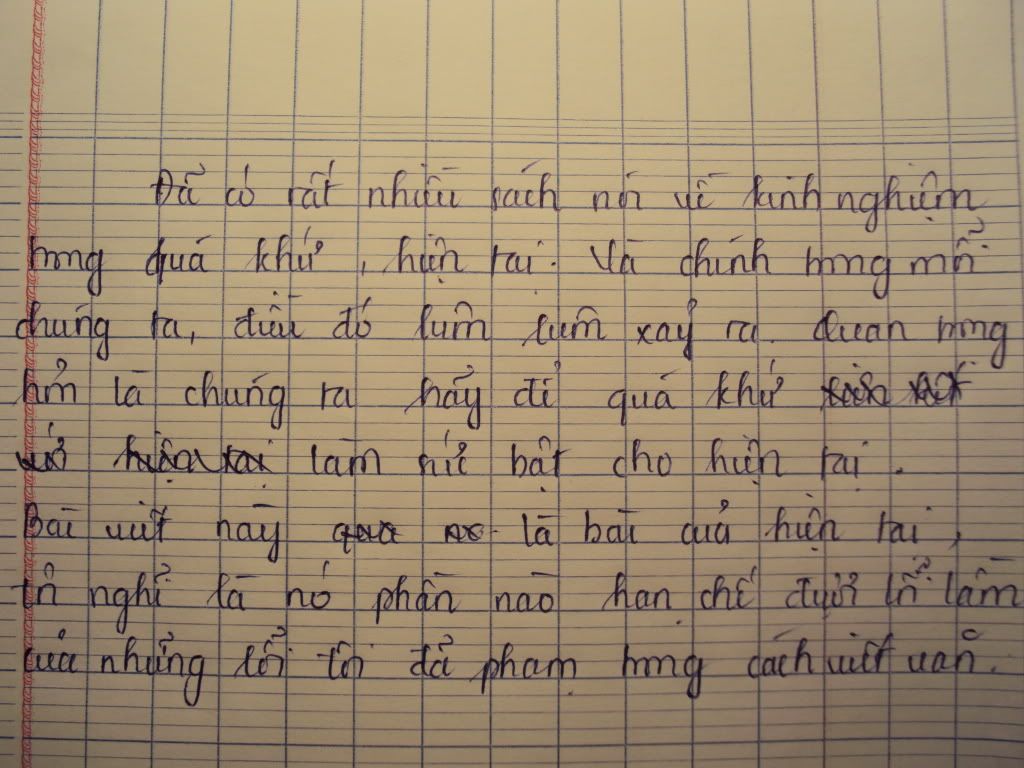 Đã có rất nhiều sách nói về kinh nghiệm
trong quá khứ, hiện tại. Và chính trong mỗi
chúng ta, điều đó luôn luôn xảy ra. Quan trong
hơn là chúng ta hãy để quá khứ
làm nổi bật cho hiện tại.
Bài viết này là bài của hiện tại,
tôi nghỉ là nó phần nào hạn chế được lỗi lầm
của những lỗi tôi đã phạm trong cách viết văn.